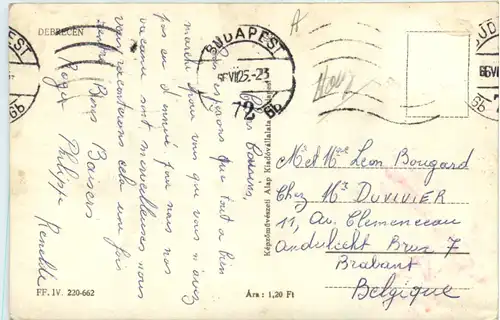 DEBRECEN
BUDAPEST
66 VII 25.-23
72
6b
Chers Bonpas,
Nous espérons que tout a bien
marché pour vous que vous n'avez
pas eu d'ennui par nous nos
vacances sont merveilleuses nous
vous raconterons cela une fois
Bons Baisers
Roger Philippe Renelde
Képzőművészeti Alap Kiadóvállalata
Mr et Mme Leon Bougard
Chez Mr DUVIVIER
11, Av. Clemenceau
Anderlecht Brux 7
Brabant
Belgique
FF. IV. 220-662
Ára : 1,20 Ft